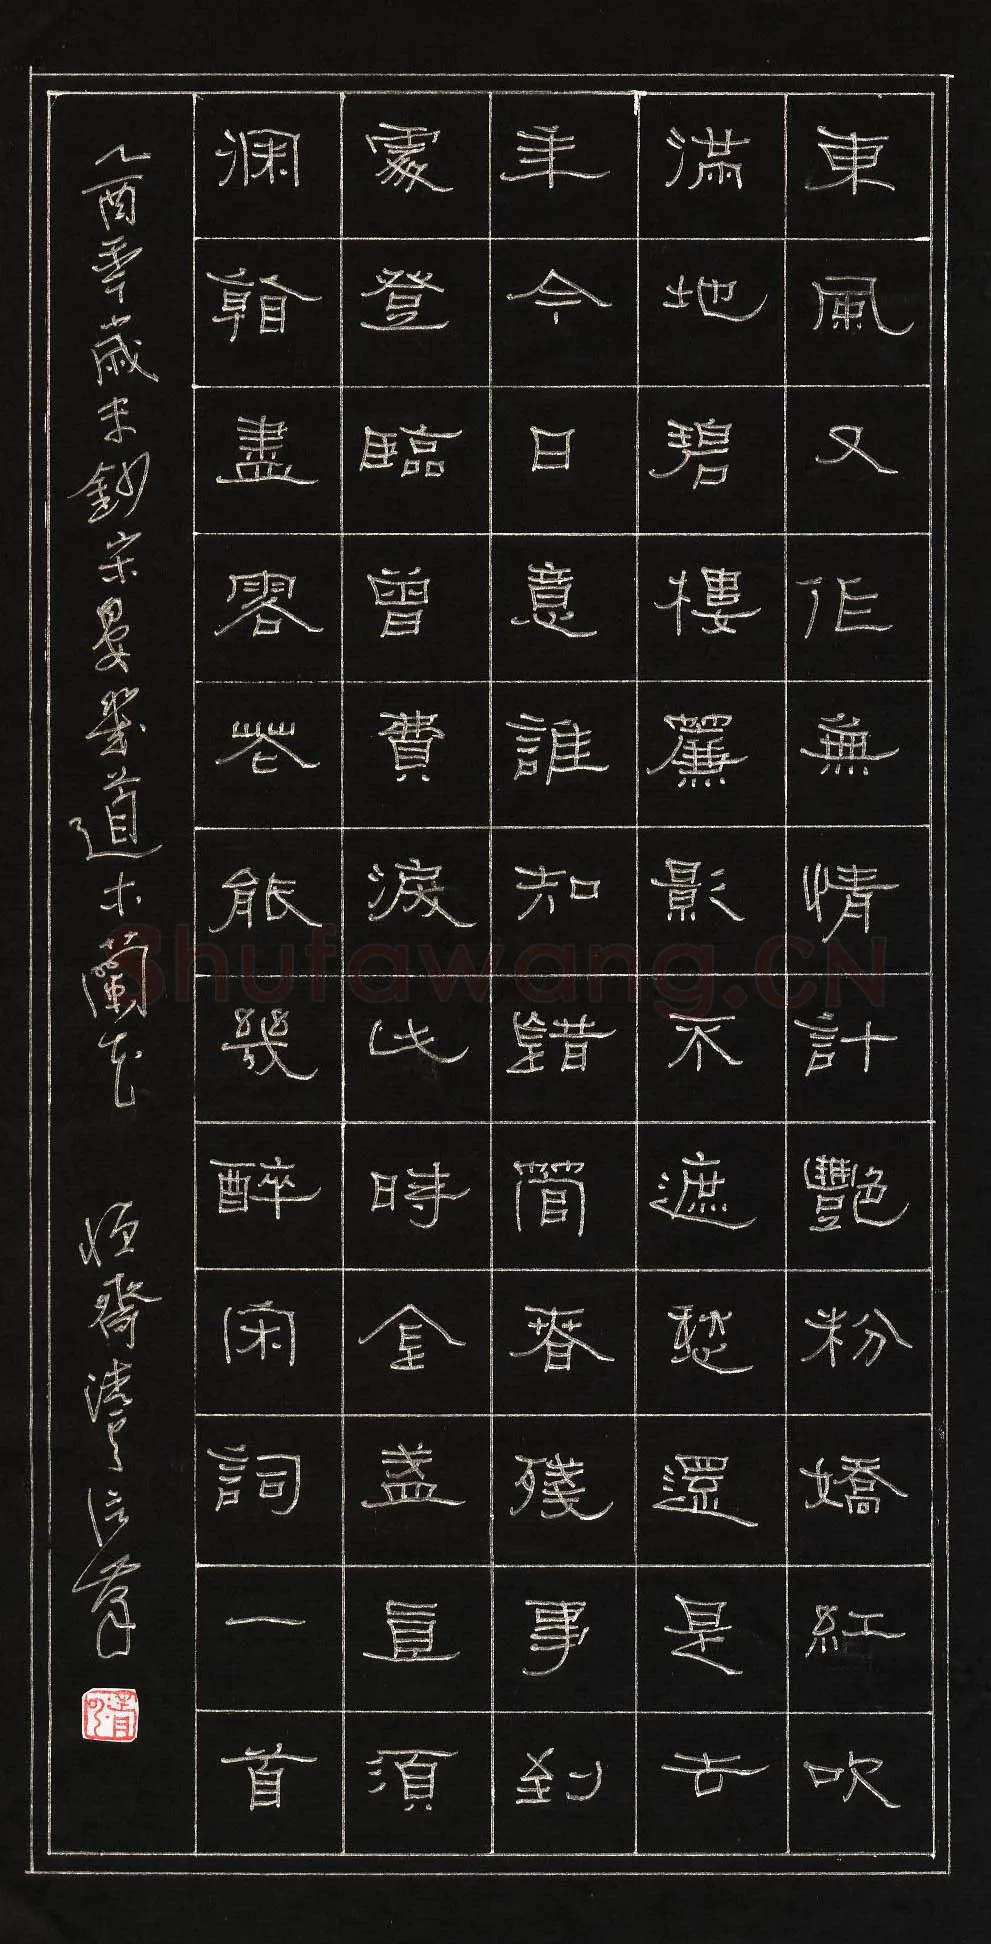 東風又作無情計艷粉嬌紅吹
滿地碧樓簾影不遮愁還是去
年今日意誰知錯簡春殘事到
處登臨曾費淚此時金盞直須
深看盡落花能幾醉宋詞一首
乙酉年歲末鈔宋晏幾道木蘭花 恒齋
Shufawang.CN